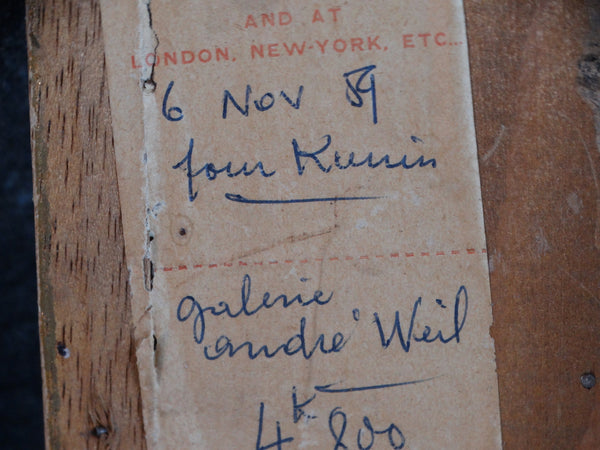 AND AT
LONDON, NEW-YORK, ETC...
6 Nov 59
pour Kunin
galerie
andré Weil
4K 800